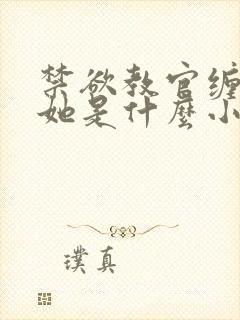 禁欲教官缠
她是什麼小
璞真